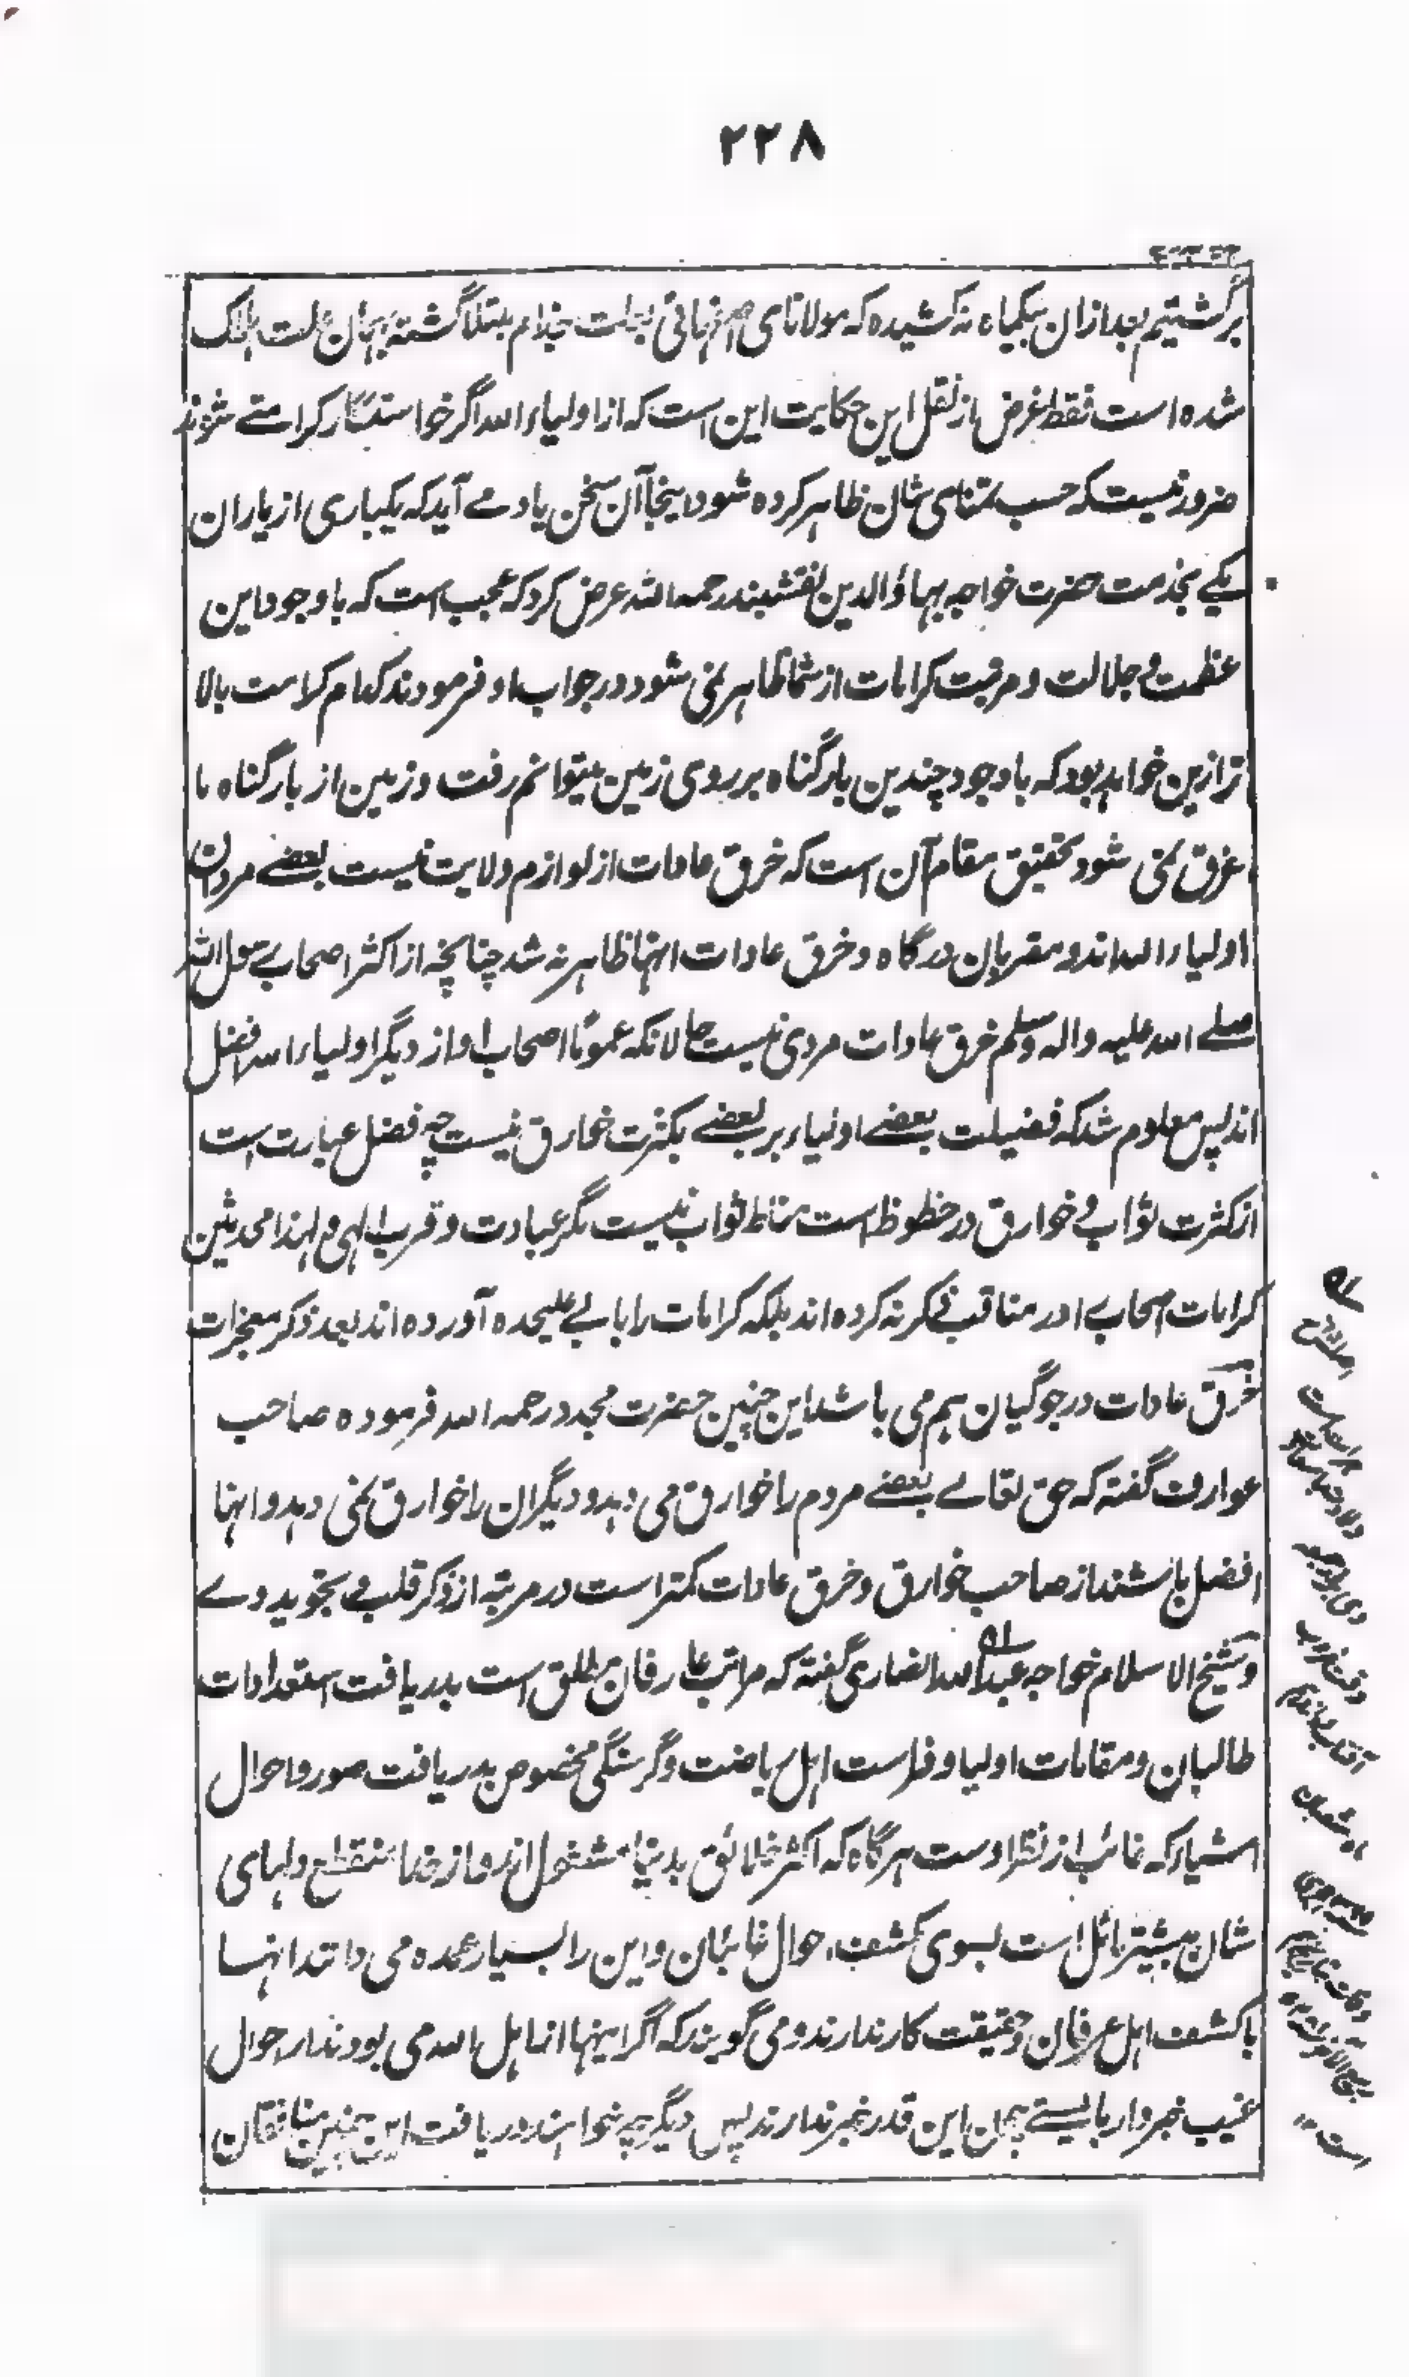 ۲۲۸
برگشتیم بعد ازان یکماه نه کشیده که مولانای اصفهانی بعلت جذام مبتلا گشته بهمان علت هلاک
شده است فقط غرض از نقل این حکایت این است که از اولیاء الله اگر خواستگار کرامتے شوند
ضرور نیست که حسب تمنای شان ظاهر کرده شود اینجا آن سخن یاد مے آید که یکباری از یاران
یکے بخدمت حضرت خواجه بهاؤالدین نقشبند رحمه الله عرض کرد که عجب است که باوجود این
عظمت و جلالت و مرتبت کرامات از شما ظاهر نمی شود در جواب او فرمودند کدام کرامت بالا
تر ازین خواهد بود که باوجود چندین بار گناه بر روی زمین میتوانم رفت و زمین از بار گناه ما
غرق نمی شود تحقیق مقام آن است که خرق عادات از لوازم ولایت نیست بعضے مردان
اولیاء الله اند و مقربان درگاه و خرق عادات انها ظاهر نه شد چنانچه از اکثر اصحاب رسول الله
صلے الله علیه واله وسلم خرق عادات مروی نیست حالانکه عموما اصحاب او از دیگر اولیاء الله افضل
اند پس معلوم شد که فضیلت بعضے اولیاء بر بعضے بکثرت خوارق نیست چه فضل عبارت است
از کثرت ثواب و خوارق در حظوظ است مناط ثواب نیست مگر عبادت و قرب الهی و لهذا محدثین
کرامات اصحاب را در مناقب ذکر نه کرده اند بلکه کرامات را بابے علیحده آورده اند بعد ذکر معجزات
خرق عادات در جوگیان هم می باشد این چنین حضرت مجدد رحمه الله فرموده صاحب
عوارف گفته که حق تعالے بعضے مردم را خوارق می دهد و دیگران را خوارق نمی دهد و انها
افضل باشند از صاحب خوارق و خرق عادات کمتر است در مرتبه از ذکر قلب و تجوید وے
و شیخ الاسلام خواجه عبدالله انصاری گفته که مراتب عارفان مطلق است بدریافت استعدادات
طالبان و مقامات اولیا و فراست اهل ریاضت و گرسنگی مخصوص بدریافت صور و احوال
اشیاء که غائب از نظر اوست هرگاه که اکثر خلائق بدنیا مشغول اند و از خدا منقطع دلهای
شان بیشتر مائل است بسوی کشف احوال غائبان و این را بسیار عمده می دانند انها
با کشف اهل عرفان و حقیقت کار ندارند و می گویند که اگر اینها از اهل الله می بودند از احوال
غیب خبردار بایستے بهمان این قدر خبر ندارند پس دیگر چه خواهند دریافت این چنین منافقان
ولادت
وقت غروب
آفتاب
ماه شعبان
وفات
است ۱۲